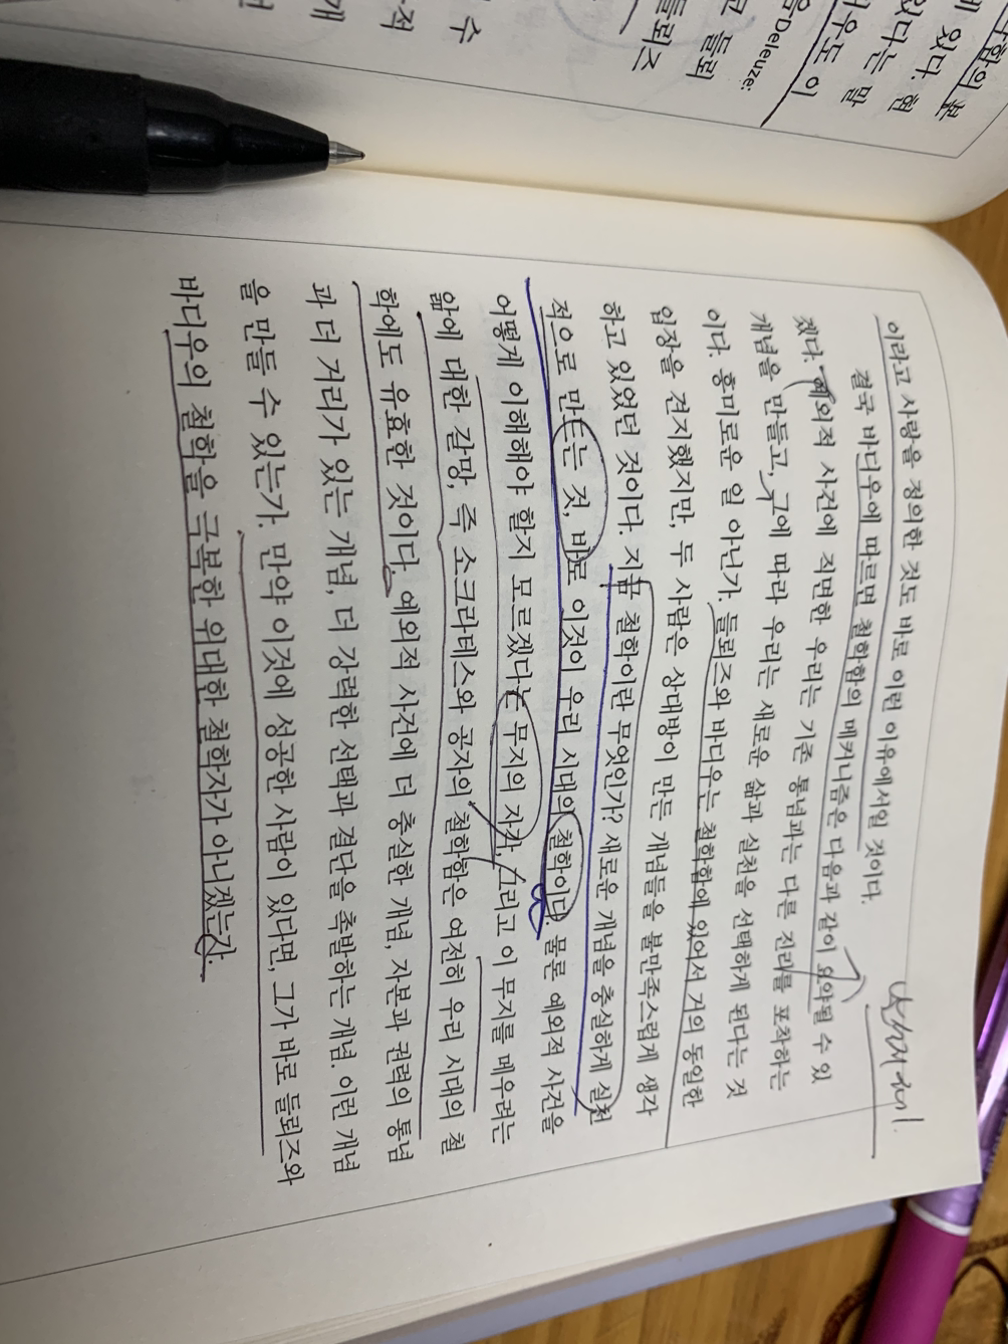 함의 본
에 있다. 혐
있다는 말
우도 이
Deleuze:
로 들뢰
들뢰즈
수
적
개
이라고 사랑을 정의한 것도 바로 이런 이유에서일 것이다.
결국 바디우에 따르면 철학함의 메커니즘은 다음과 같이 요약될 수 있
겠다. 예외적 사건에 직면한 우리는 기존 통념과는 다른 진리를 포착하는
개념을 만들고, 그에 따라 우리는 새로운 삶과 실천을 선택하게 된다는 것
이다. 흥미로운 일 아닌가. 들뢰즈와 바디우는 철학함에 있어서 거의 동일한
입장을 견지했지만, 두 사람은 상대방이 만든 개념들을 불만족스럽게 생각
하고 있었던 것이다. 지금 철학이란 무엇인가? 새로운 개념을 충실하게 실천
적으로 만드는 것, 바로 이것이 우리 시대의 철학이다. 물론 예외적 사건을
어떻게 이해해야 할지 모르겠다는 무지의 자각, 그리고 이 무지를 메우려는
앎에 대한 갈망, 즉 소크라테스와 공자의 철학함은 여전히 우리 시대의 철
학에도 유효한 것이다. 예외적 사건에 더 충실한 개념, 자본과 권력의 통념
과 더 거리가 있는 개념, 더 강력한 선택과 결단을 촉발하는 개념. 이런 개념
을 만들 수 있는가. 만약 이것에 성공한 사람이 있다면, 그가 바로 들뢰즈와
바디우의 철학을 극복한 위대한 철학자가 아니겠는가.